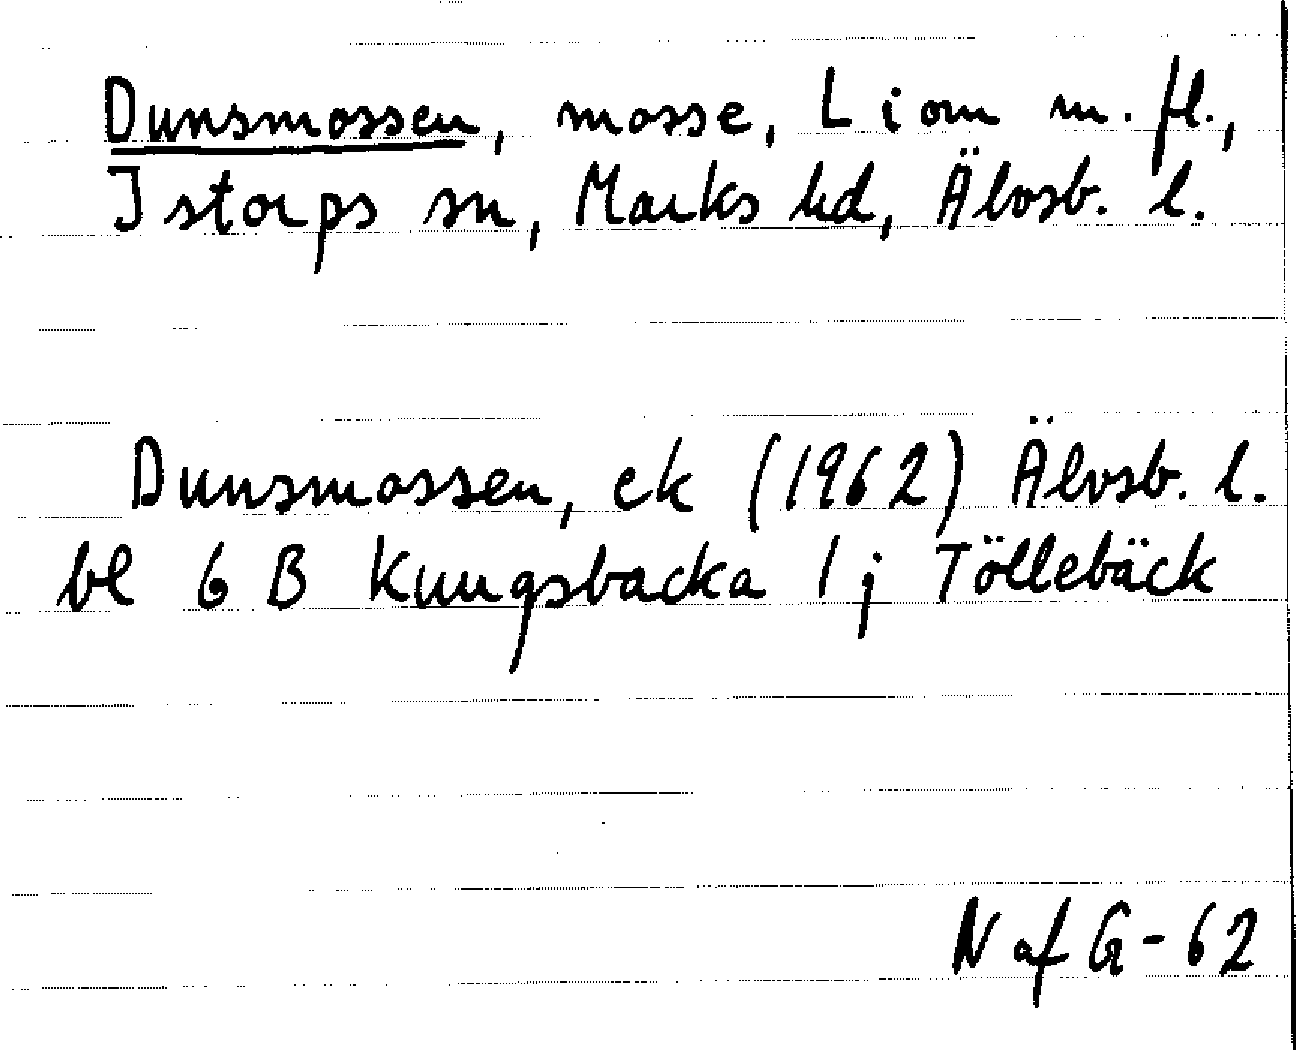 Dunsmossen, mosse, Liom m. fl.,
Istorps sn, Marks hd, Älvsb. l.
Dunsmossen, ek (1962) Älvsb. l.
bl 6 B Kungsbacka 1 j Töllebäck
N af G-62